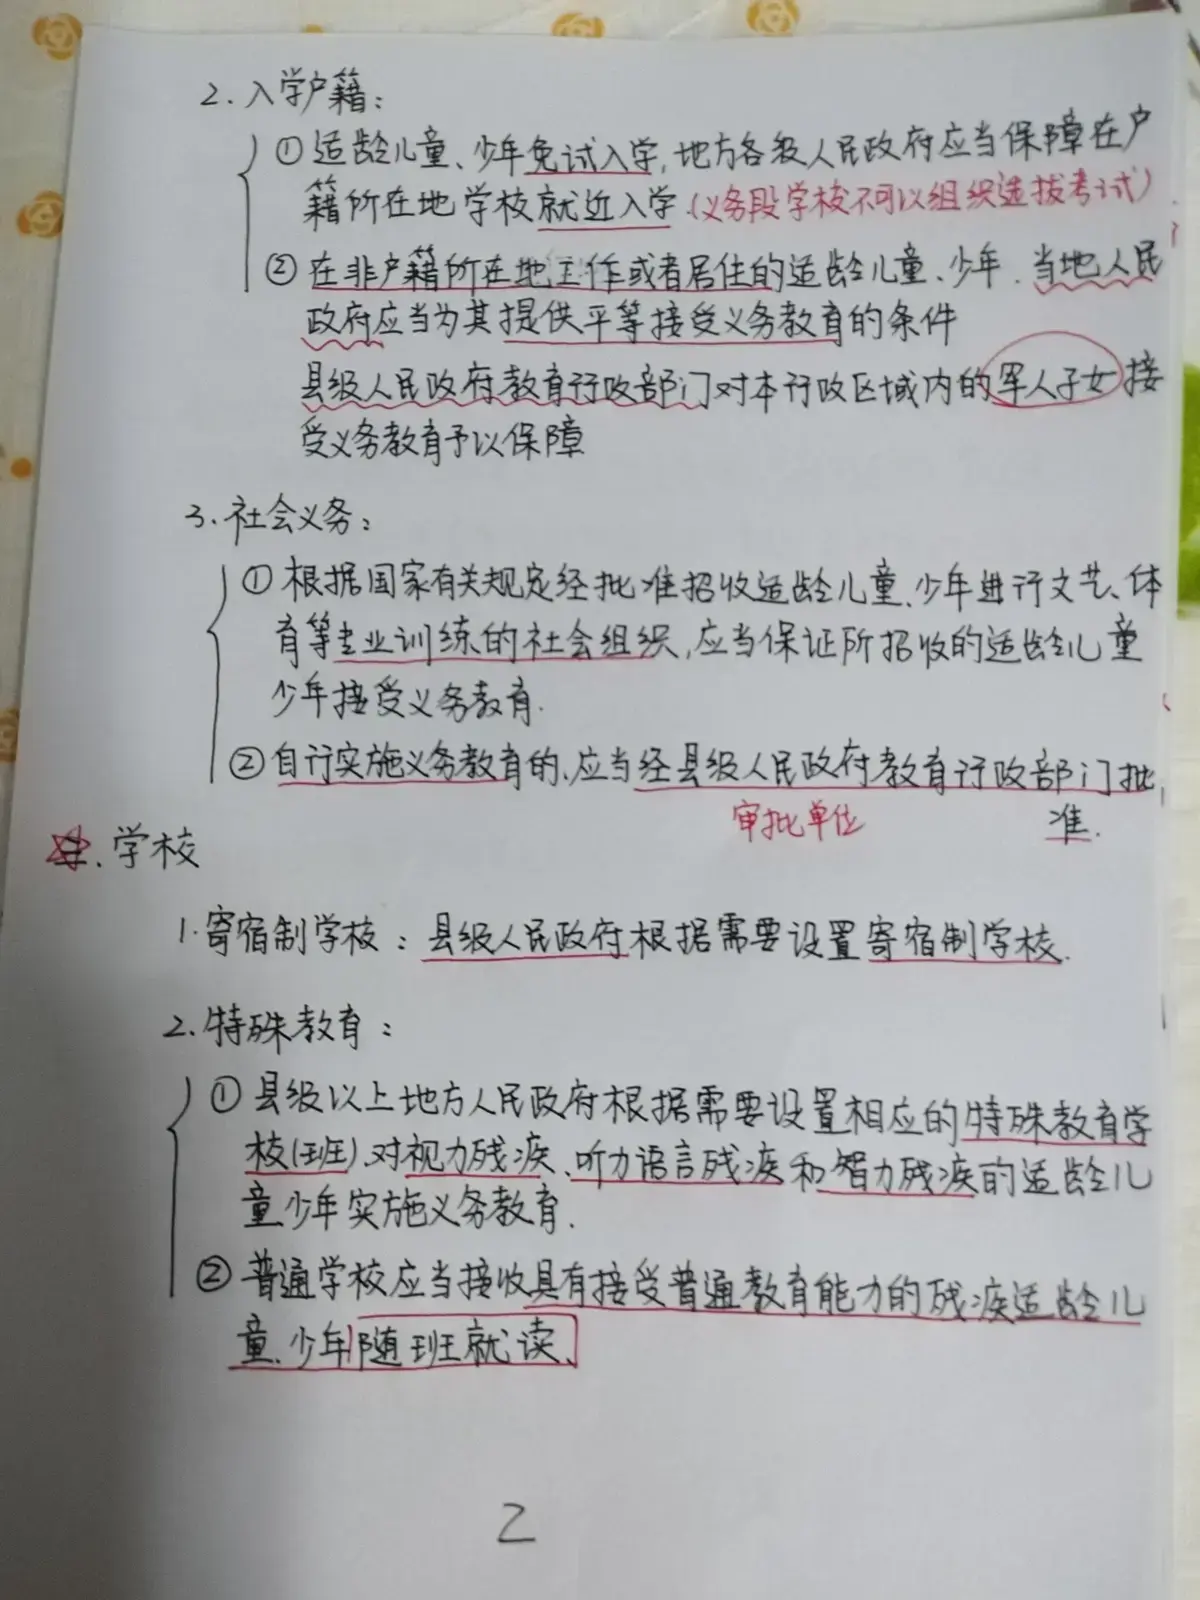 2.入学户籍：
①适龄儿童、少年免试入学,地方各级人民政府应当保障在户
籍所在地学校就近入学.(义务段学校不可以组织选拔考试)
②在非户籍所在地工作或者居住的适龄儿童、少年.当地人民
政府应当为其提供平等接受义务教育的条件
县级人民政府教育行政部门对本行政区域内的军人子女接
受义务教育予以保障
3.社会义务：
①根据国家有关规定经批准招收适龄儿童、少年进行文艺、体
育等专业训练的社会组织,应当保证所招收的适龄儿童
少年接受义务教育.
②自行实施义务教育的、应当经县级人民政府教育行政部门批
审批单位 准.
.学校
1.寄宿制学校：县级人民政府根据需要设置寄宿制学校.
2.特殊教育：
①县级以上地方人民政府根据需要设置相应的特殊教育学
校(班)、对视力残疾、听力语言残疾和智力残疾的适龄儿
童少年实施义务教育.
②普通学校应当接收具有接受普通教育能力的残疾适龄儿
童、少年随班就读、
2